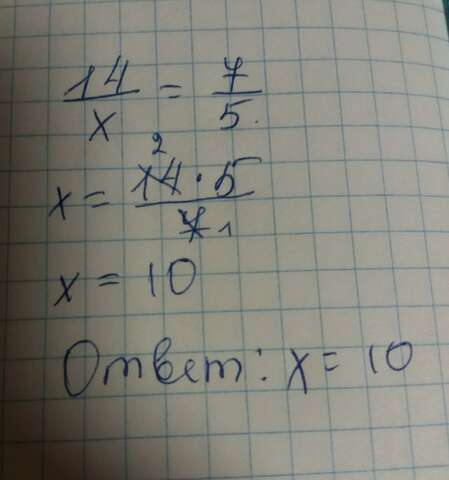 14/x = 7/5.
x = 14·5/7 2 1
x = 10
Ответ: x = 10